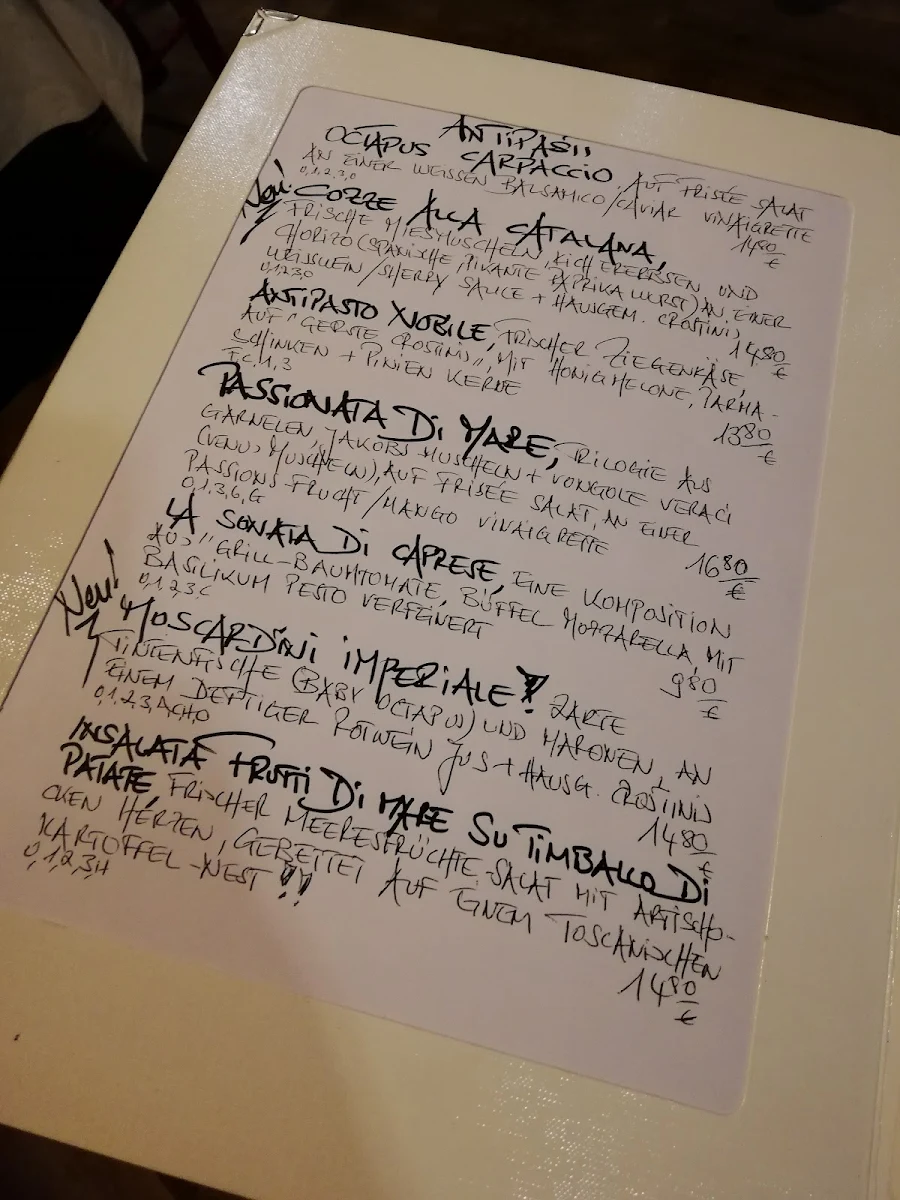 ANTIPASTI
OCTAPUS CARPACCIO, AUF FRISÉE SALAT
AN EINER WEISSEN BALSAMICO/CAVIAR VINAIGRETTE
0,1,2,3,0
14 80 €
Neu! COZZE ALLA CATALANA,
FRISCHE MIESMUSCHELN, KICHERERBSEN UND
CHORIZO (SPANISCHE, PIKANTE PAPRIKA WURST) AN EINER
WEISSWEIN/SHERRY SAUCE + HAUSGEM. CROSTINIS
0,1,2,3,0
14 80 €
ANTIPASTO NOBILE, FRISCHER ZIEGENKÄSE,
AUF "GERSTE CROSTINIS", MIT HONIGMELONE, PARMA-
SCHINKEN + PINIEN KERNE
F,C,1,3
13 80 €
PASSIONATA DI MARE, TRILOGIE AUS
GARNELEN, JAKOBSMUSCHELN + VONGOLE VERACI
(VENUS MUSCHELN), AUF FRISÉE SALAT, AN EINER
PASSIONS-FRUCHT/MANGO VINAIGRETTE
0,1,3,6,G
16 80 €
LA SONATA DI CAPRESE, EINE KOMPOSITION
AUS "GRILL-BAUMTOMATE, BÜFFEL MOZZARELLA, MIT
BASILIKUM PESTO VERFEINERT
0,1,2,3,C
9 80 €
Neu! MOSCARDINI IMPERIALE! ZARTE
TINTENFISCHE (BABY OCTAPUS) UND MARONEN, AN
EINEM DEFTIGER ROTWEIN JUS + HAUSG. CROSTINIS
0,1,2,3,A,C,H,O
14 80 €
INSALATA FRUTTI DI MARE SU TIMBALLO DI
PATATE, FRISCHER MEERESFRÜCHTE-SALAT MIT ARTISCHO-
CKEN HERZEN, GEBETTET AUF EINEM TOSCANISCHEN
KARTOFFEL-NEST!!
0,1,2,3,H
14 80 €